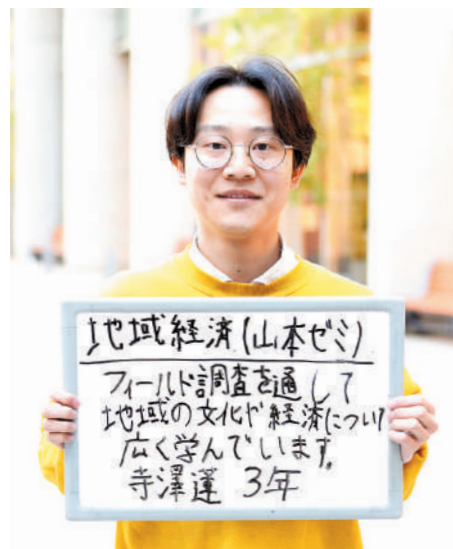 地域経済(山本ゼミ)
フィールド調査を通して
地域の文化や経済について
広く学んでいます。
寺澤蓮 3年